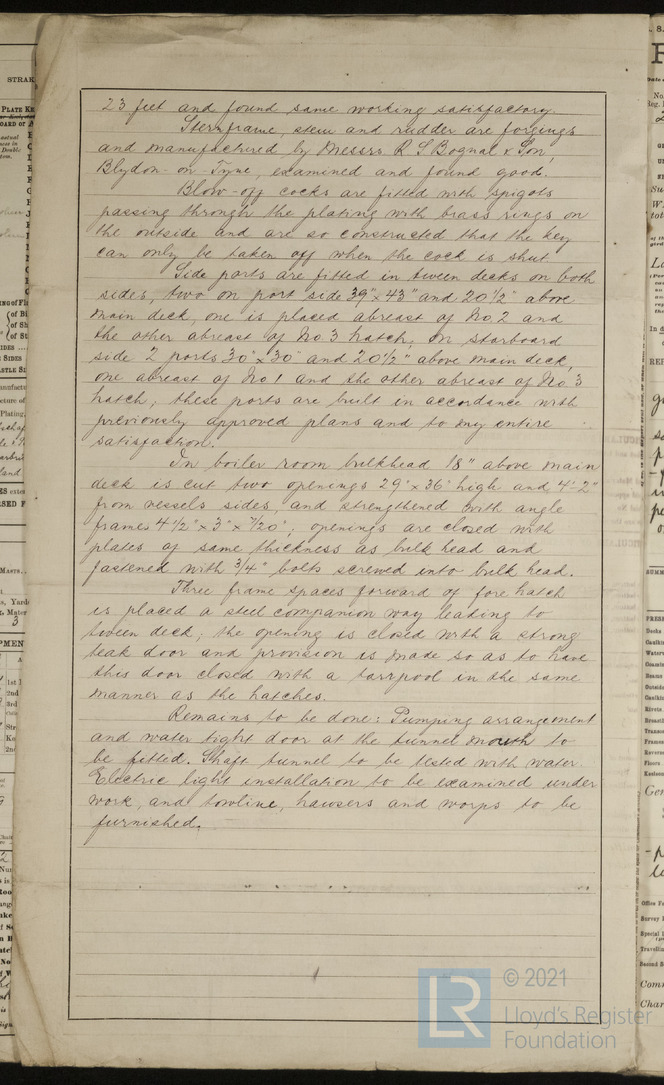 23 feet and found same working satisfactory.
Sternframe, stem and rudder are forgings
and manufactured by Messrs. R S Bognal & Son,
Blydon-on-Tyne, examined and found good.
Blow-off cocks are fitted with spigots
passing through the plating with brass rings on
the outside and are so constructed that the key
can only be taken off when the cock is shut
Side ports are fitted in tween decks on both
sides, two on port side 39" x 43" and 20 1/2" above
main deck, one is placed abreast of No. 2 and
the other abreast of No. 3 hatch, on starboard
side 2 ports 30" x 30" and 20 1/2" above main deck,
one abreast of No 1 and the other abreast of No. 3
hatch; these ports are built in accordance with
previously approved plans and to my entire
satisfaction.
In boiler room bulkhead 18" above main
deck is cut two openings 29" x 36" high and 4'-2"
from vessels sides, and strengthened with angle
frames 4 1/2" x 3" x 7/20"; openings are closed with
plates of same thickness as bulk head and
fastened with 3/4" bolts screwed into bulk head.
Three frame spaces forward of fore hatch
is placed a steel companion way leading to
tween deck; the opening is closed with a strong
teak door and provision is made so as to have
this door closed with a tarrpool in the same
manner as the hatches.
Remains to be done: Pumping arrangement
and water tight door at the tunnel mouth to
be fitted. Shaft tunnel to be tested with water.
Electric light installation to be examined under
work, and towline, hawsers and worps to be
furnished.
© 2021
LR
Lloyd's Register
Foundation